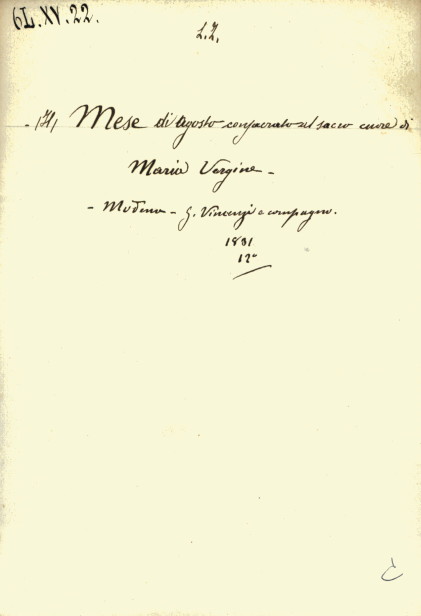 6L.XV.22.
L.Z.
- (Il) Mese di Agosto consacrato al sacro cuore di
Maria Vergine -
- Modena - G. Vincenzi e compagno.
1831
12°